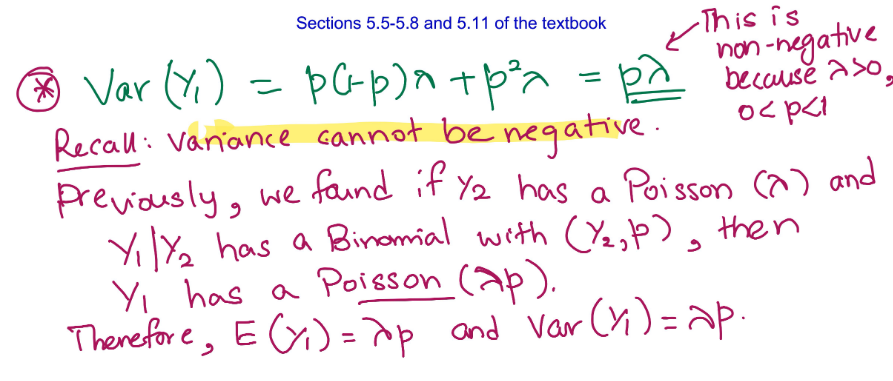 Sections 5.5-5.8 and 5.11 of the textbook
This is
non-negative
because λ>0,
0<p<1
⊛ Var (Y₁) = p(1-p)λ + p²λ = pλ
Recall: Variance cannot be negative.
Previously, we found if Y₂ has a Poisson (λ) and
Y₁|Y₂ has a Binomial with (Y₂,p), then
Y₁ has a Poisson (λp).
Therefore, E(Y₁) = λp and Var (Y₁) = λp.